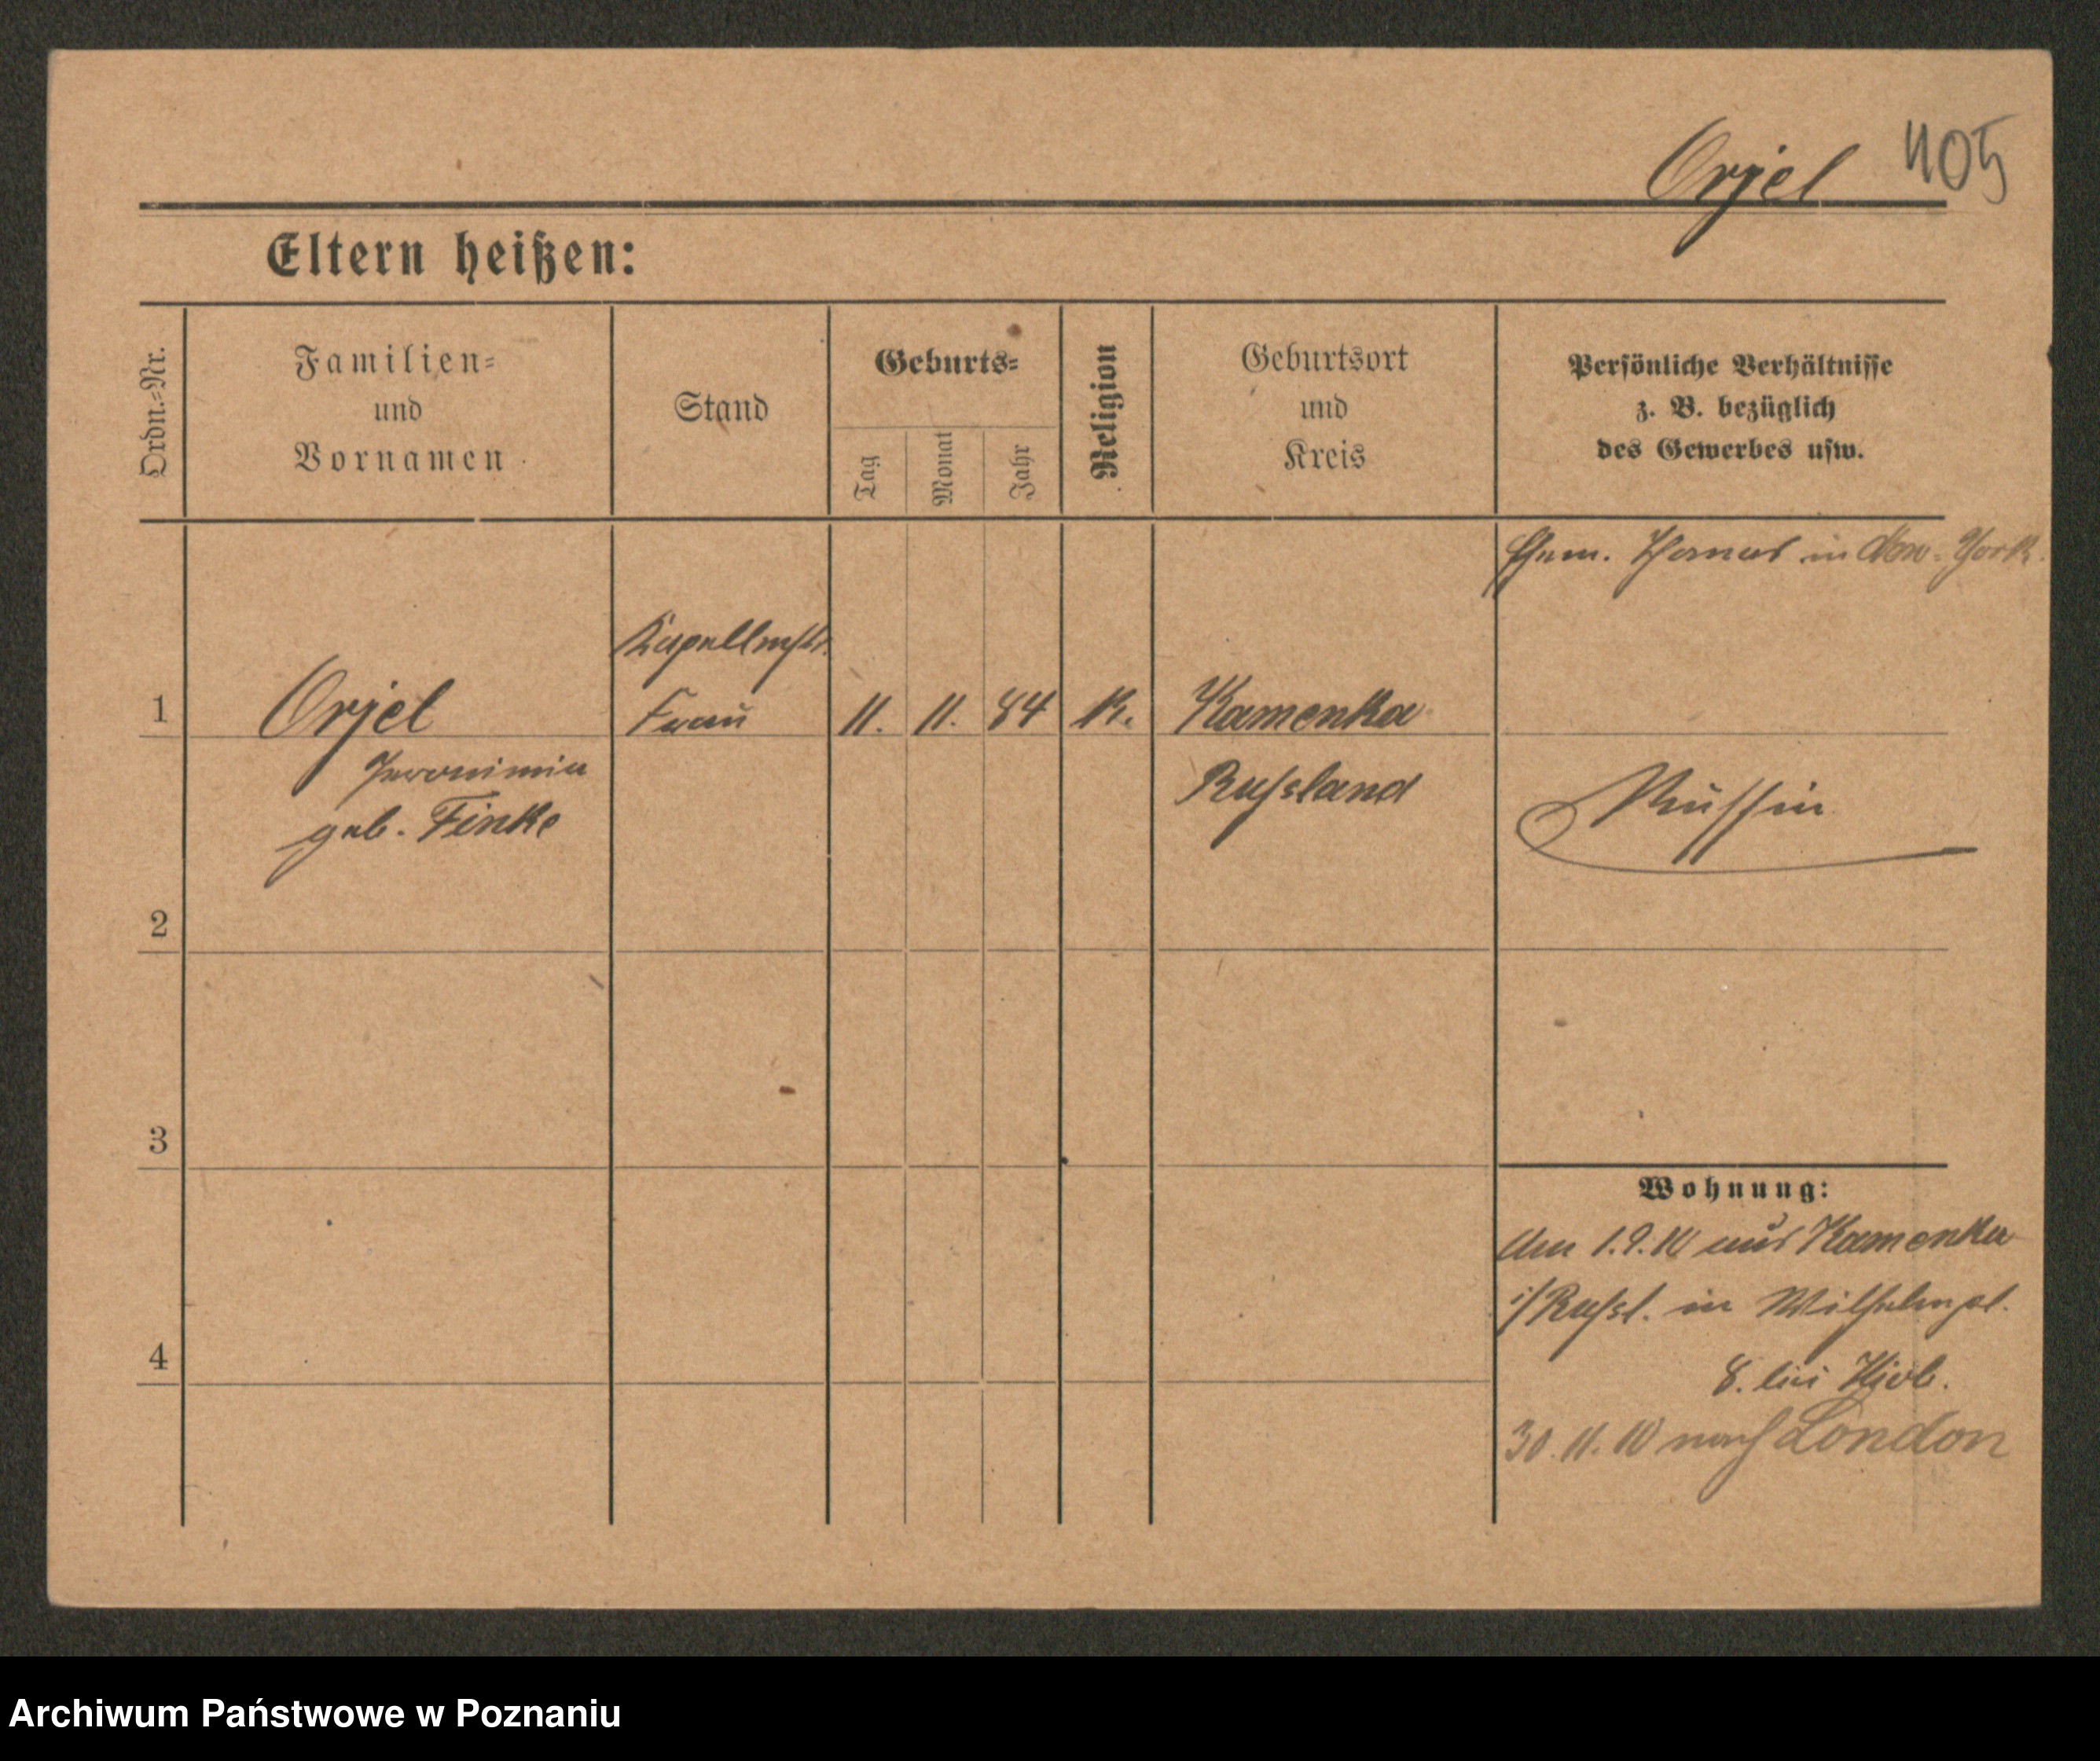 Orjel 405
Eltern heißen:
Ordn.-Nr.
Familien-
und
Vornamen
Stand
Geburts-
Tag
Monat
Jahr
Religion
Geburtsort
und
Kreis
Persönliche Verhältnisse
z. B. bezüglich
des Gewerbes usw.
Ehem. in New-York.
Kapellmstr.
1 Orjel Frau 11. 11. 84 K. Kamenka
geb. Finke
Russland
Russin
2
3
4
Wohnung:
Am 1.9.10 aus Kamenka
i/Russl. in Wilhelmpl.
8. bei
30.11.10 nach London
Archiwum Państwowe w Poznaniu